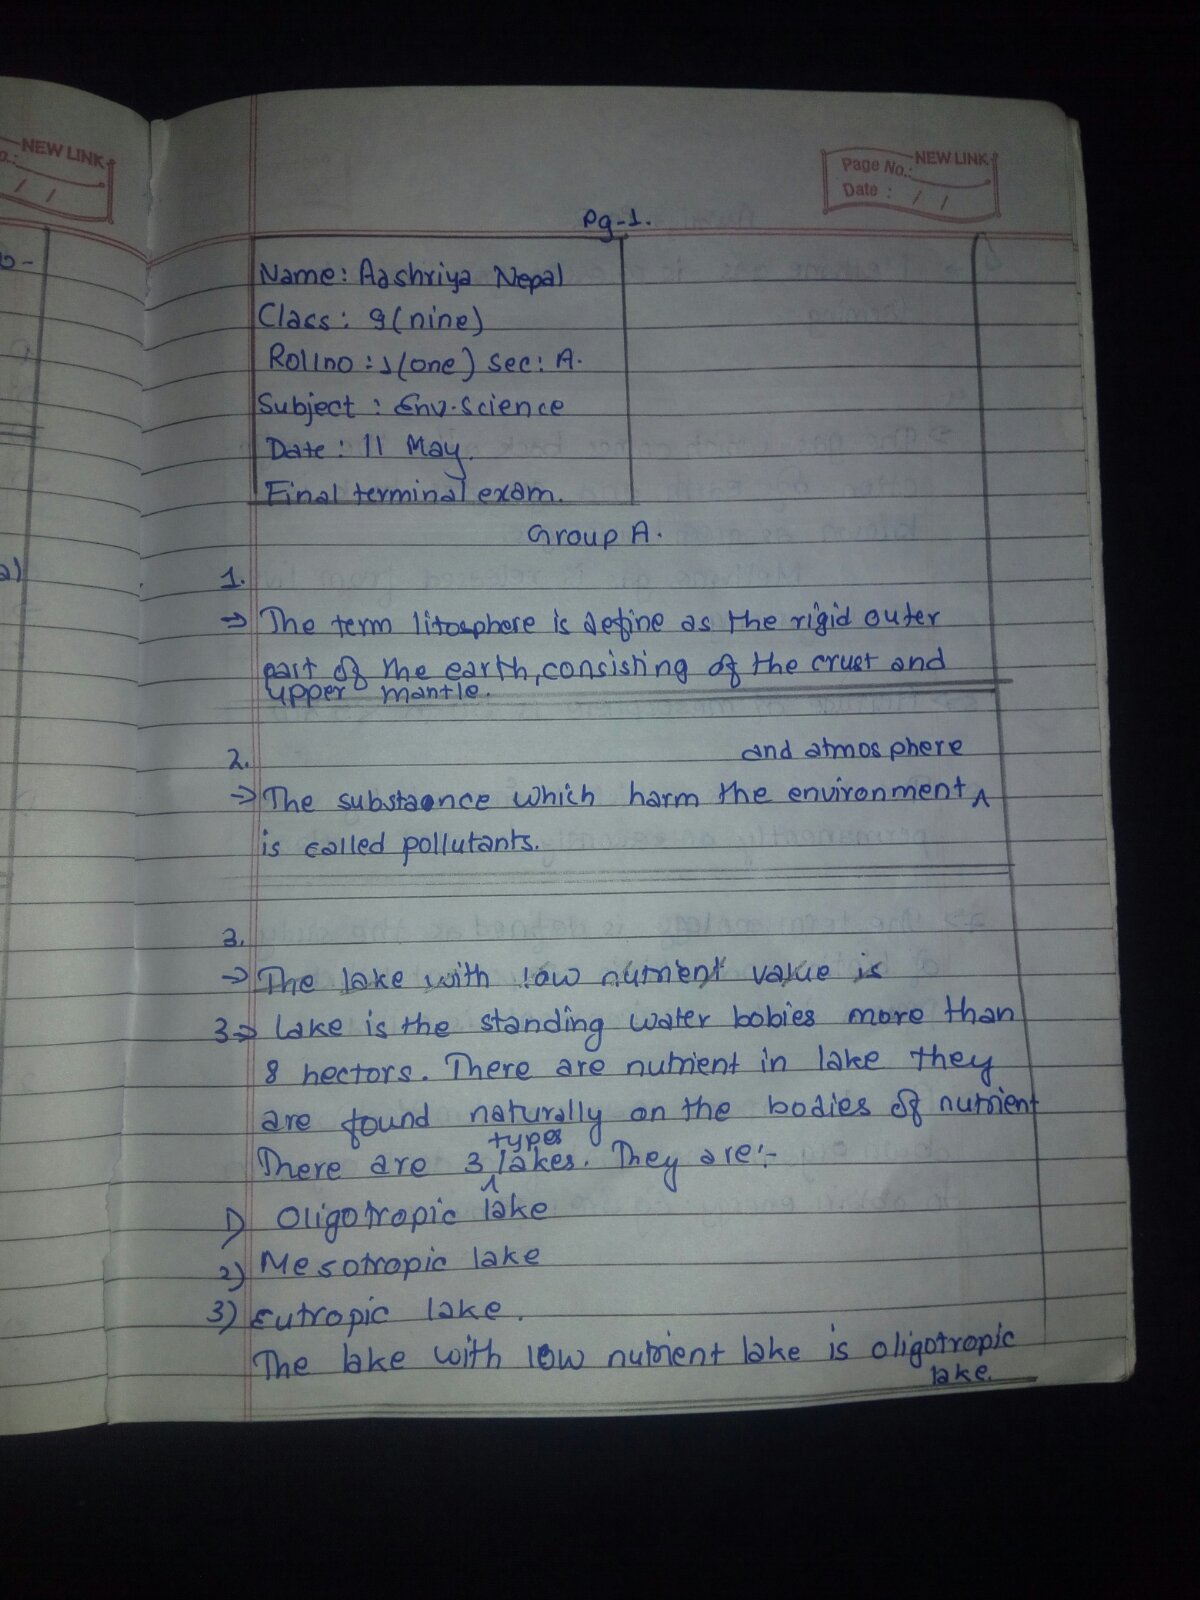 NEW LINK
o.:
/ /
NEW LINK
Page No.:
Date : / /
Pg-1.
Name: Aashriya Nepal
Class: 9(nine)
Rollno : 1(one) Sec: A.
Subject : Env.Science
Date : 11 May.
Final terminal exam.
Group A.
1.
→ The term litosphere is define as the rigid outer
part of the earth, consisting of the crust and
upper mantle.
2.
and atmosphere
→ The substaonce which harm the environment ^
is called pollutants.
3.
→ The lake with low nutrient value is
3→ Lake is the standing water bobies more than
8 hectors. There are nutrient in lake they
are found naturally on the bodies of nutrient
types
There are 3 ^ lakes. They are:-
1) Oligotropic lake
2) Mesotropic lake
3) Eutropic lake.
The lake with low nutrient lake is oligotropic
lake.